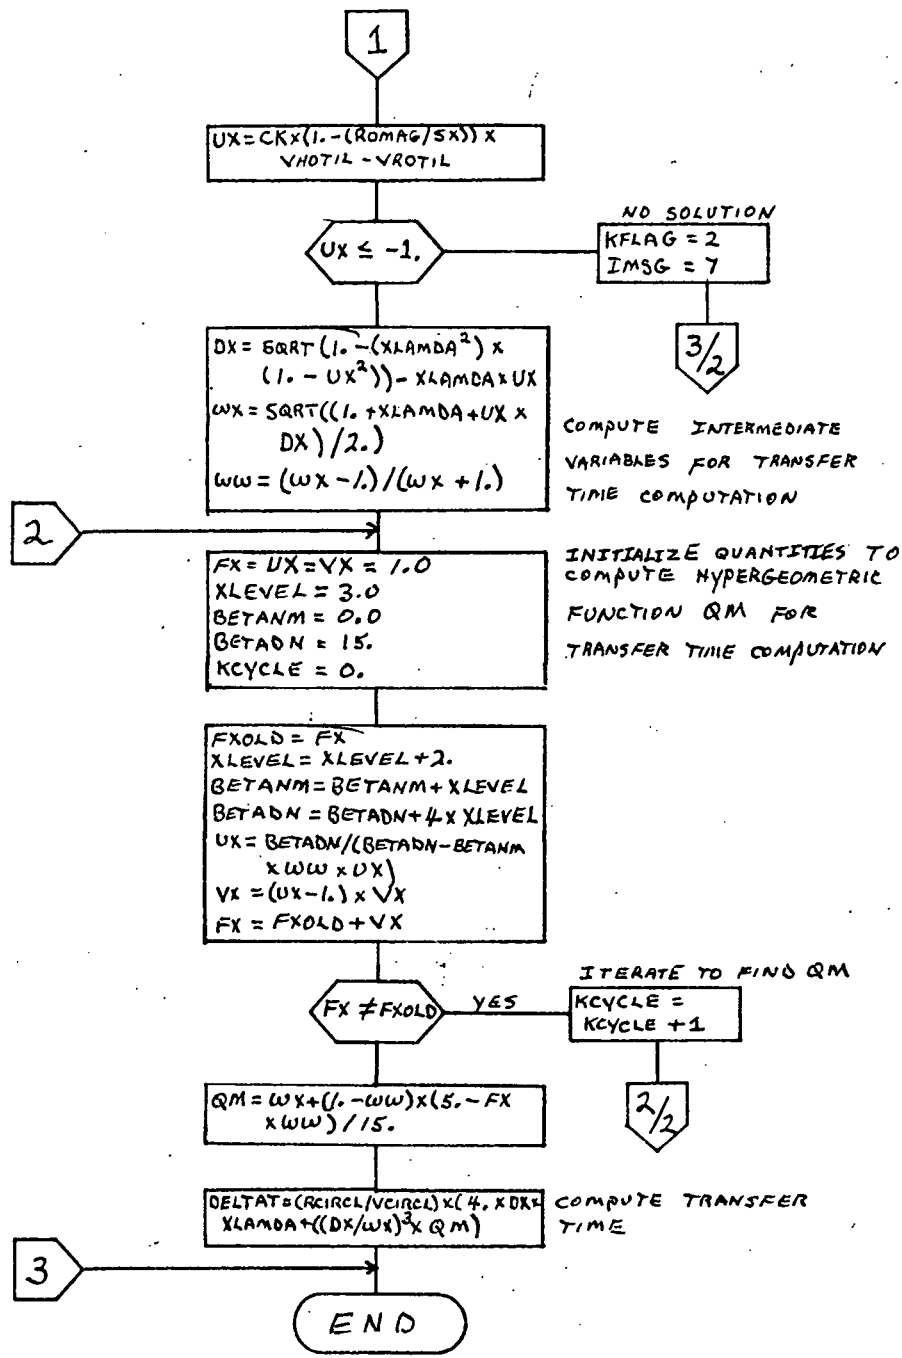 1
UX = CK x (1. - (ROMAG/SX)) x
VHOTIL - VROTIL
NO SOLUTION
UX ≤ -1.
KFLAG = 2
IMSG = 7
3/2
DX = SQRT (1. - (XLAMDA²) x
(1. - UX²)) - XLAMDA x UX
WX = SQRT((1. + XLAMDA + UX x
DX) / 2.)
WW = (WX - 1.) / (WX + 1.)
COMPUTE INTERMEDIATE
VARIABLES FOR TRANSFER
TIME COMPUTATION
2
FX = UX = VX = 1.0
XLEVEL = 3.0
BETANM = 0.0
BETADN = 15.
KCYCLE = 0.
INITIALIZE QUANTITIES TO
COMPUTE HYPERGEOMETRIC
FUNCTION QM FOR
TRANSFER TIME COMPUTATION
FXOLD = FX
XLEVEL = XLEVEL + 2.
BETANM = BETANM + XLEVEL
BETADN = BETADN + 4 x XLEVEL
UX = BETADN/(BETADN - BETANM
x WW x UX)
VX = (UX - 1.) x VX
FX = FXOLD + VX
ITERATE TO FIND QM
FX ≠ FXOLD
YES
KCYCLE =
KCYCLE + 1
2/2
QM = WX + (1. - WW) x (5. - FX
x WW) / 15.
DELTAT = (RCIRCL/VCIRCL) x (4. x DX x
XLAMDA + ((DX/WX)³ x QM)
COMPUTE TRANSFER
TIME
3
END